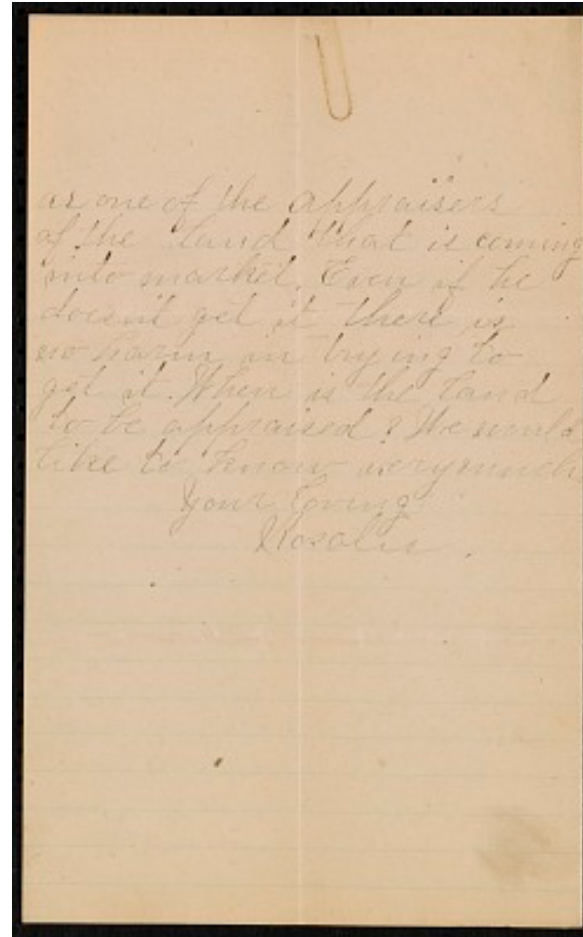 as one of the appraisers
of the land that is coming
into market. Even if he
doesnt get it there is
no harm in trying to
get it. When is the land
to be appraised? We would
like to know very much
Your loving
Rosalie.